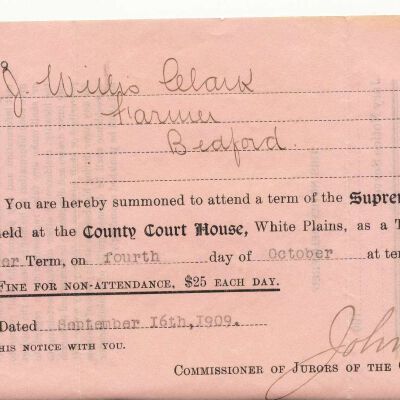 J. Willis Clark
Farmer
Bedford.
You are hereby summoned to attend a term of the Suprem
held at the County Court House, White Plains, as a T
er Term, on fourth day of October at ten
FINE FOR NON-ATTENDANCE, $25 EACH DAY.
Dated September 16th, 1909.
HIS NOTICE WITH YOU.
John
COMMISSIONER OF JURORS OF THE C